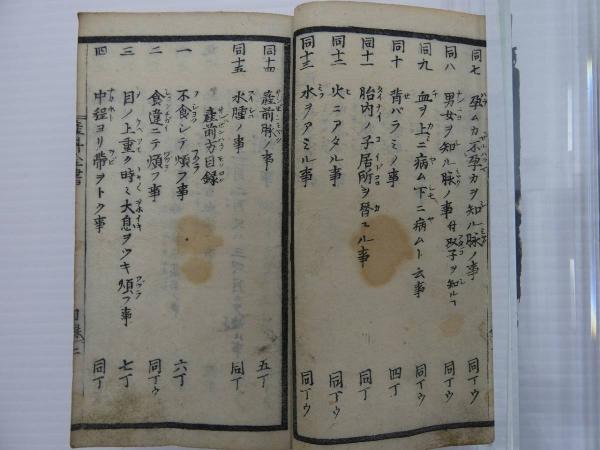 同七 孕ムカ不孕カヲ知ル脉ノ事 同丁ウ
同八 男女ヲ知ル脉ノ事 付双子ヲ知ル 同丁ウ
同九 血ヲ上ニ病ム下ニ病ムト云事 同丁ウ
同十 背バラミノ事 四丁
同十一 胎内ノ子居所ヲ替ヱル事 同丁
同十二 火ニアタル事 同丁ウ
同十三 水ヲアミル事 同丁ウ
同十四 産前脉ノ事 五丁
同十五 水腫ノ事 同丁
産前方目録
一 不食シテ煩フ事 六丁
二 食違ニテ煩フ事 同丁ウ
三 目ノ上重ク時々大息ヲツキ煩フ事 七丁
四 中程ヨリ帯ヲトク事 同丁
産科全書
目録 二